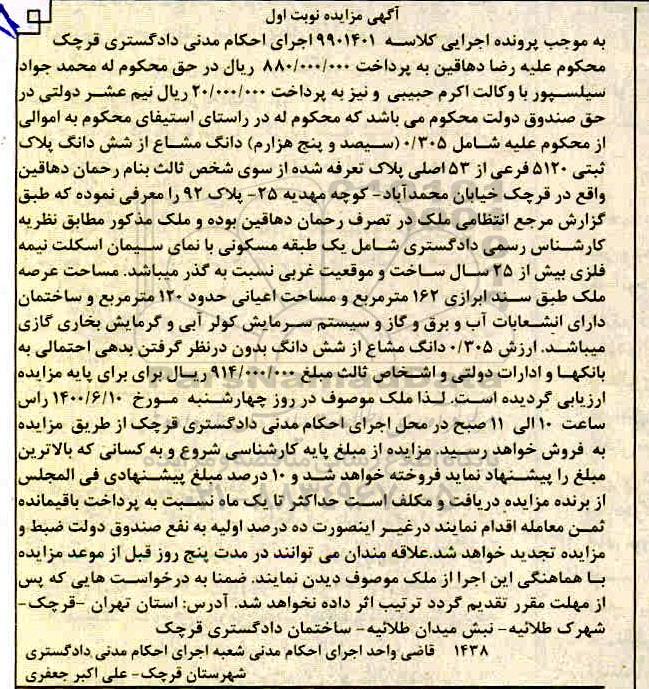 آگهی مزایده نوبت اول
به موجب پرونده اجرایی کلاسه ۹۹۰۱۴۰۱ اجرای احکام مدنی دادگستری قرچک
محکوم علیه رضا دهاقین به پرداخت ۸۸۰/۰۰۰/۰۰۰ ریال در حق محکوم له محمد جواد
سیلسپور با وکالت اکرم حبیبی و نیز به پرداخت ۲۰/۰۰۰/۰۰۰ ریال نیم عشر دولتی در
حق صندوق دولت محکوم می باشد که محکوم له در راستای استیفای محکوم به اموالی
از محکوم علیه شامل ۰/۳۰۵ (سیصد و پنج هزارم) دانگ مشاع از شش دانگ پلاک
ثبتی ۵۱۲۰ فرعی از ۵۳ اصلی پلاک تعرفه شده از سوی شخص ثالث بنام رحمان دهاقین
واقع در قرچک خیابان محمدآباد- کوچه مهدیه ۲۵- پلاک ۹۲ را معرفی نموده که طبق
گزارش مرجع انتظامی ملک در تصرف رحمان دهاقین بوده و ملک مذکور مطابق نظریه
کارشناس رسمی دادگستری شامل یک طبقه مسکونی با نمای سیمان اسکلت نیمه
فلزی بیش از ۲۵ سال ساخت و موقعیت غربی نسبت به گذر میباشد. مساحت عرصه
ملک طبق سند ابرازی ۱۶۲ مترمربع و مساحت اعیانی حدود ۱۲۰ مترمربع و ساختمان
دارای انشعابات آب و برق و گاز و سیستم سرمایش کولر آبی و گرمایش بخاری گازی
میباشد. ارزش ۰/۳۰۵ دانگ مشاع از شش دانگ بدون درنظر گرفتن بدهی احتمالی به
بانکها و ادارات دولتی و اشخاص ثالث مبلغ ۹۱۴/۰۰۰/۰۰۰ ریال برای برای پایه مزایده
ارزیابی گردیده است. لذا ملک موصوف در روز چهارشنبه مورخ ۱۴۰۰/۶/۱۰ راس
ساعت ۱۰ الی ۱۱ صبح در محل اجرای احکام مدنی دادگستری قرچک از طریق مزایده
به فروش خواهد رسید. مزایده از مبلغ پایه کارشناسی شروع و به کسانی که بالاترین
مبلغ را پیشنهاد نماید فروخته خواهد شد و ۱۰ درصد مبلغ پیشنهادی فی المجلس
از برنده مزایده دریافت و مکلف است حداکثر تا یک ماه نسبت به پرداخت باقیمانده
ثمن معامله اقدام نمایند درغیر اینصورت ده درصد اولیه به نفع صندوق دولت ضبط و
مزایده تجدید خواهد شد.علاقه مندان می توانند در مدت پنج روز قبل از موعد مزایده
با هماهنگی این اجرا از ملک موصوف دیدن نمایند. ضمنا به درخواست هایی که پس
از مهلت مقرر تقدیم گردد ترتیب اثر داده نخواهد شد. آدرس: استان تهران -قرچک-
شهرک طلائیه- نبش میدان طلائیه- ساختمان دادگستری قرچک
۱۴۳۸ قاضی واحد اجرای احکام مدنی شعبه اجرای احکام مدنی دادگستری
شهرستان قرچک- علی اکبر جعفری